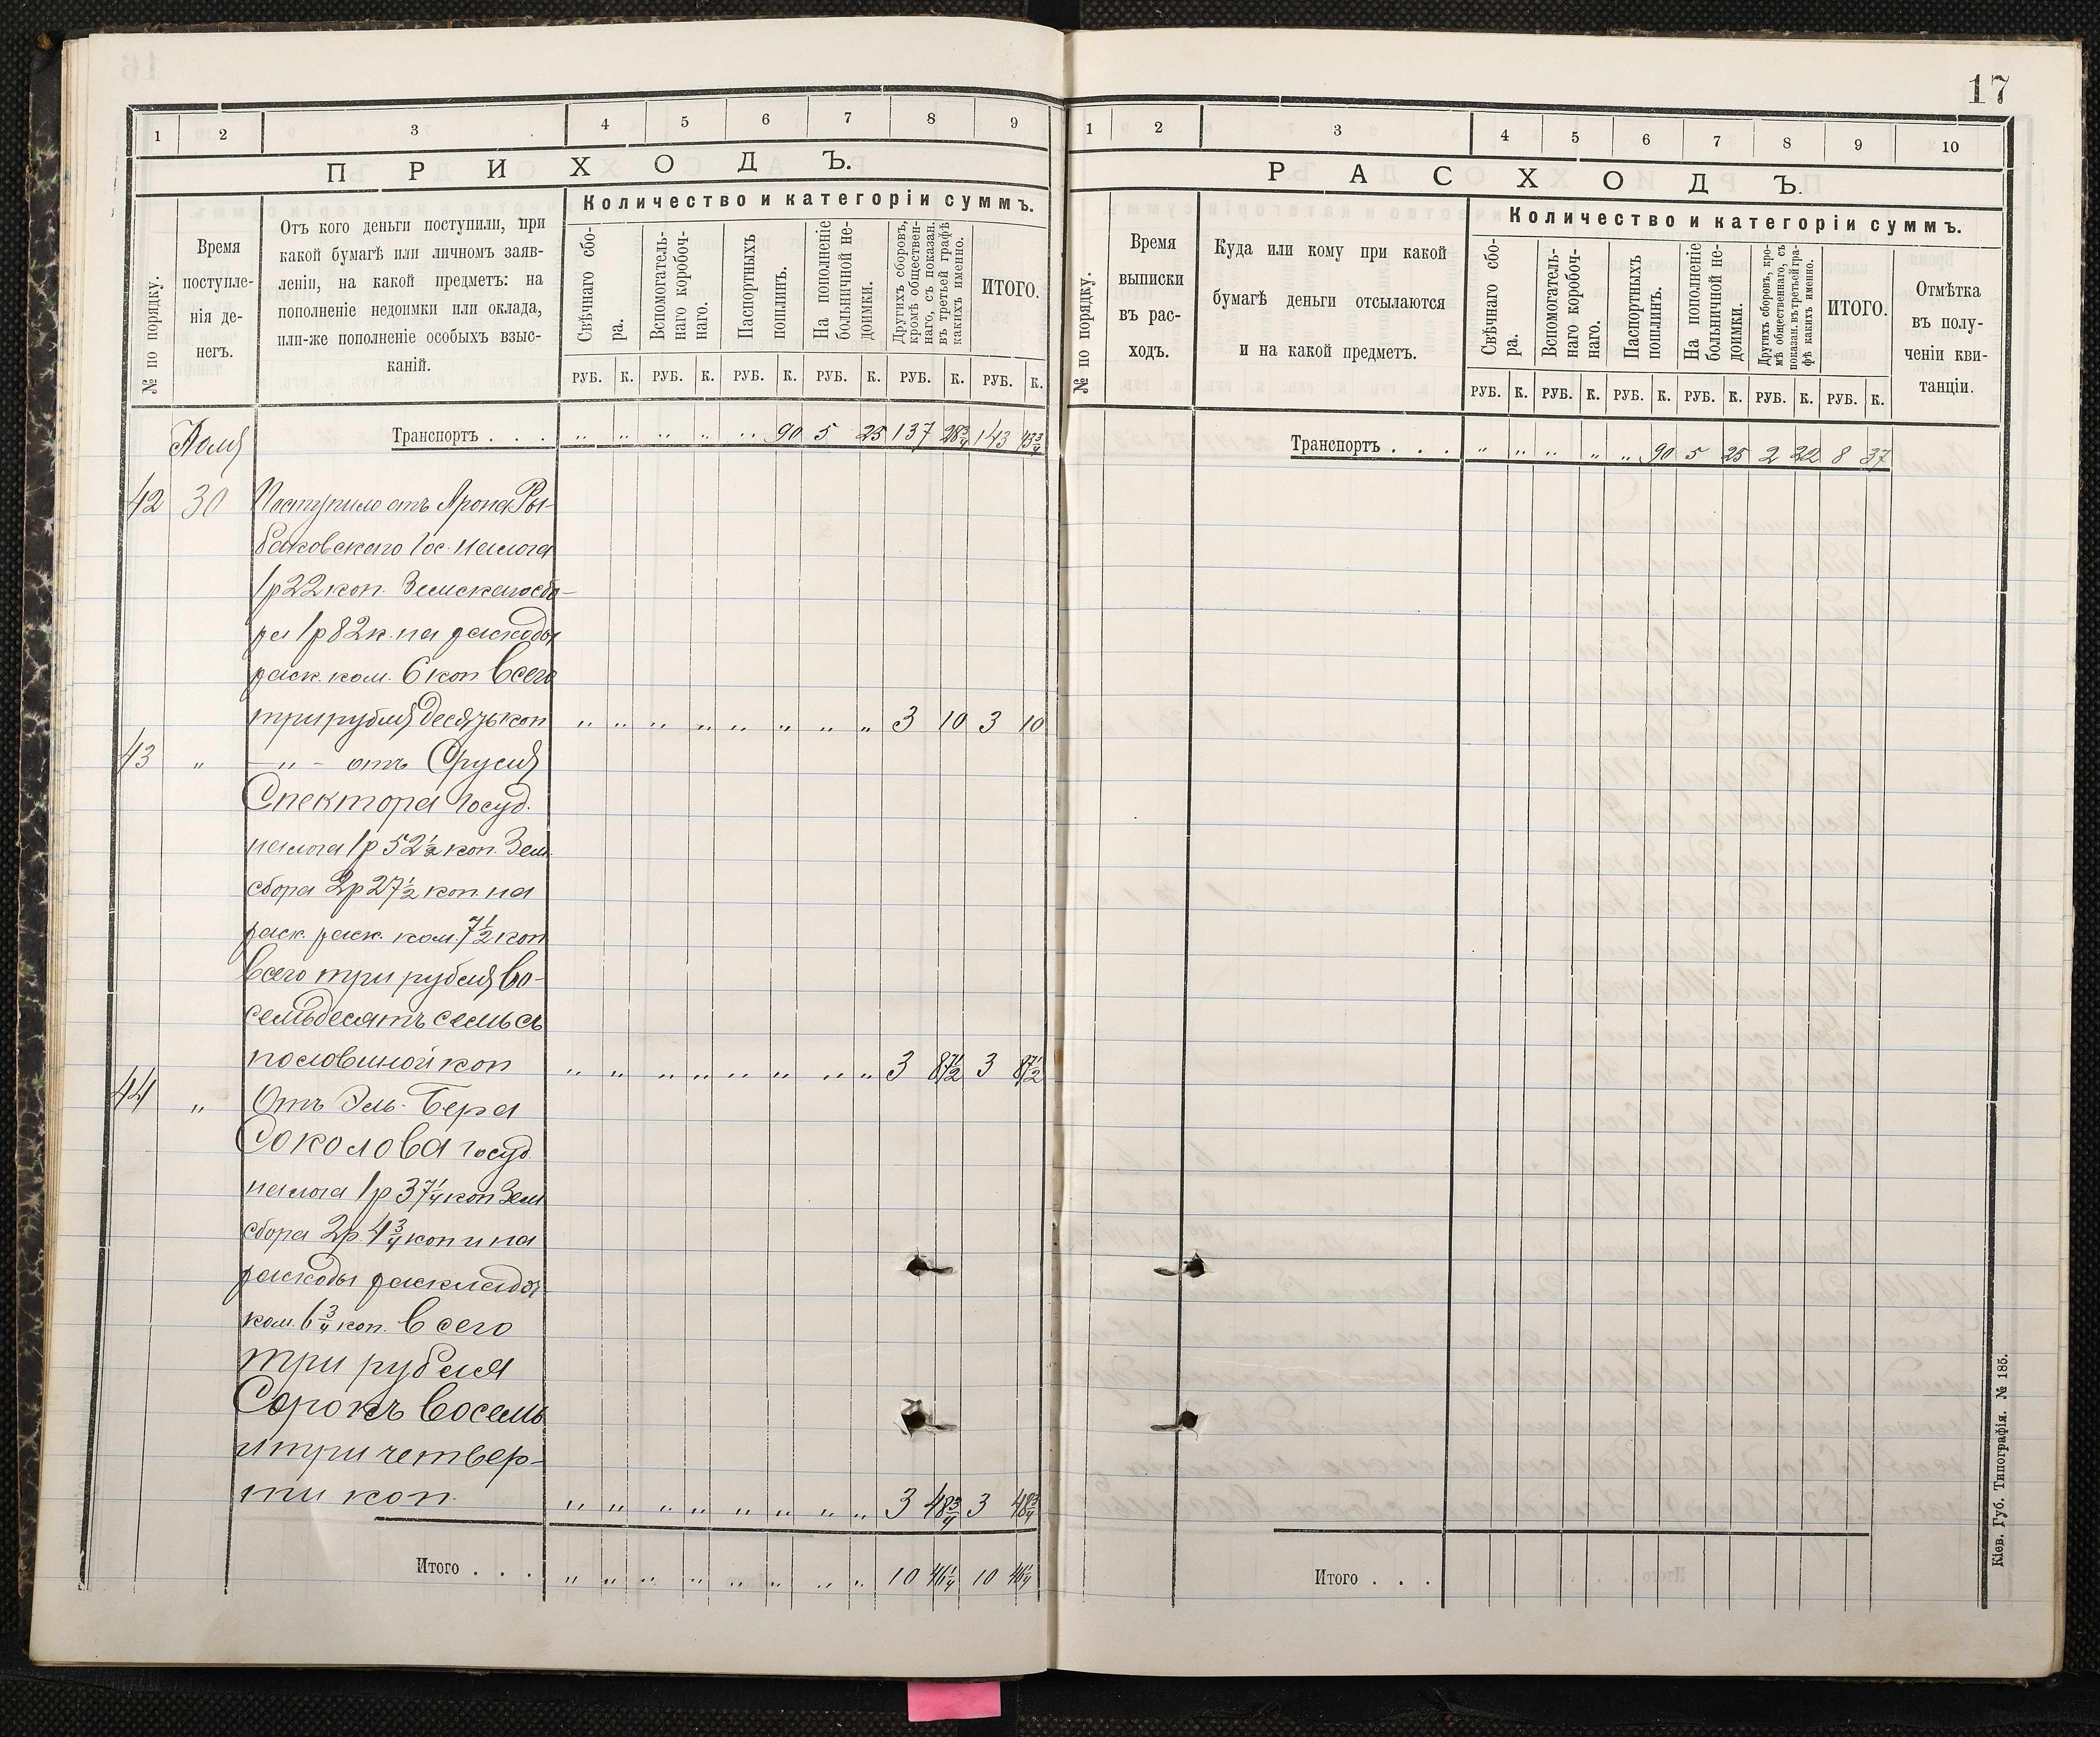 17
1 2 3 4 5 6 7 8 9
ПРИХОДЪ.
№ по порядку.
Время
поступле-
нія де-
негъ.
Отъ кого деньги поступили, при
какой бумагѣ или личномъ заяв-
леніи, на какой предметъ: на
пополненіе недоимки или оклада,
или-же пополненіе особыхъ взыс-
каній.
Количество и категоріи суммъ.
Свѣчнаго сбо-
ра.
Вспомогатель-
наго коробоч-
наго.
Паспортныхъ
пошлинъ.
На пополненіе
больничной не-
доимки.
Другихъ сборовъ,
кромѣ обществен-
наго, съ показан.
въ третьей графѣ
какихъ именно.
ИТОГО.
РУБ. К. РУБ. К. РУБ. К. РУБ. К. РУБ. К. РУБ. К.
Транспортъ . . . " " " " " 90 5 25 137 28 3/4 143 43 3/4
42 30 Поступило отъ Арона Ры-
баковскаго Гос. налога
1р 22 коп. Земскаго сбо-
ра 1р 82к. на расходы
раск. ком. 6 коп Всего
три рубля десять коп " " " " " " " " 3 10 3 10
43 " - " - отъ Сруля
Спектора Госуд.
налога 1р 52 1/2 коп. Зем.
сбора 2р 27 1/2 коп. на
раск. раск. ком. 7 1/2 коп
Всего три рубля во-
семьдесятъ семь съ
половиной коп " " " " " " " " 3 87 1/2 3 87 1/2
44 " Отъ Эль-Бера
Соколова Госуд
налога 1р 37 1/4 коп Зем
сбора 2р 4 3/4 коп и на
расходы расклады
ком. 6 3/4 коп. Всего
три рубля
Сорокъ восемь
и три четвер-
ти коп. " " " " " " " " 3 48 3/4 3 48 3/4
Итого . . . " " " " " " " " 10 46 1/4 10 46 1/4
1 2 3 4 5 6 7 8 9 10
РАСХОДЪ.
№ по порядку.
Время
выписки
въ рас-
ходъ.
Куда или кому при какой
бумагѣ деньги отсылаются
и на какой предметъ.
Количество и категоріи суммъ.
Свѣчнаго сбо-
ра.
Вспомогатель-
наго коробоч-
наго.
Паспортныхъ
пошлинъ.
На пополненіе
больничной не-
доимки.
Другихъ сборовъ, кро-
мѣ общественнаго, съ
показан. въ третьей гра-
фѣ какихъ именно.
ИТОГО.
Отмѣтка
въ полу-
ченіи кви-
танціи.
РУБ. К. РУБ. К. РУБ. К. РУБ. К. РУБ. К. РУБ. К.
Транспортъ . . . " " " " " 90 5 25 2 22 8 37
Итого . . .
Кіев. Губ. Типографія. № 185.